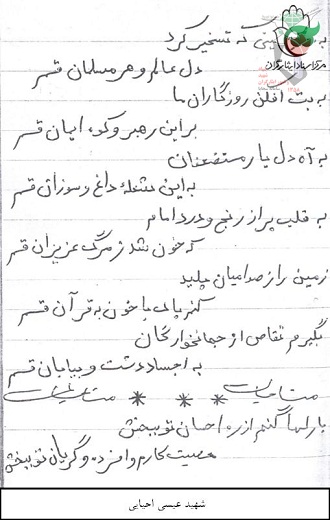 مرکز اسناد ایثارگران
به که تسخیر کرد
دل عالم و هر مسلمان قسم
به بت افکن روزگاران ما
بر این رهبر و کوه ایمان قسم
به آه دل یار مستضعفان
به این مشعله داغ و سوزان قسم
به قلب پر از رنج و درد امام
که خون شد ز مرگ عزیزان قسم
زمین را ز صدامیان پلید
کنم پاک با خون به قرآن قسم
بگیرم تقاص از جهانخوارگان
به اجساد دشت و بیابان قسم
مناجات * * * مناجات
بارلها گنهم از ره احسان تو ببخش
معصیت کارم و افسرده و گریان تو ببخش
شهید عیسی احیایی